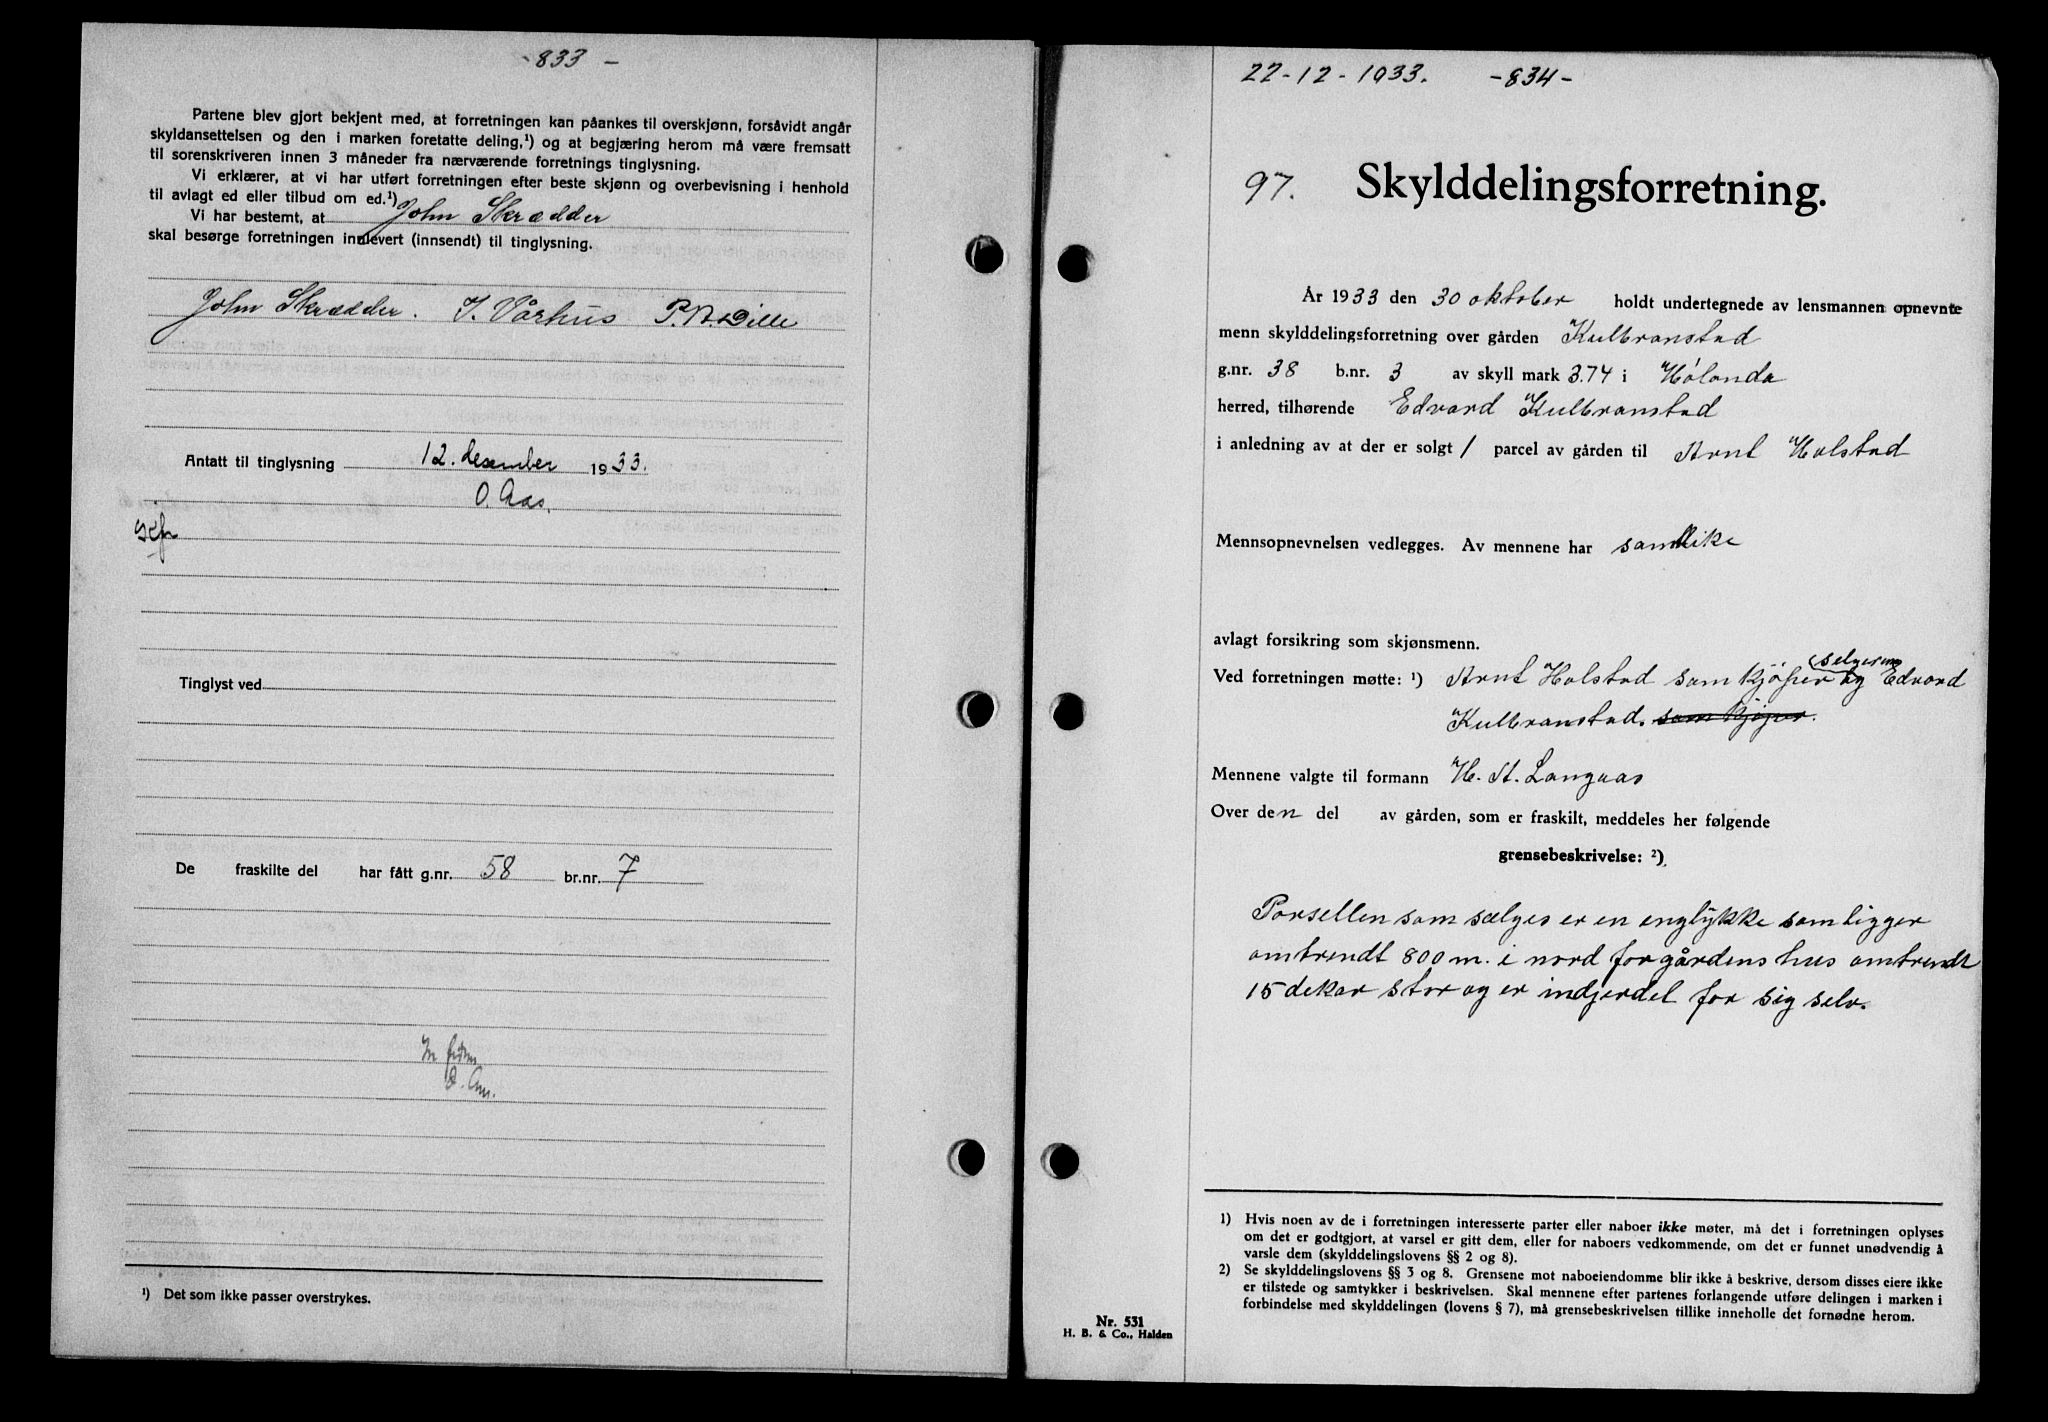 833 -
Partene blev gjort bekjent med, at forretningen kan påankes til overskjønn, forsåvidt angår
skyldansettelsen og den i marken foretatte deling,¹) og at begjæring herom må være fremsatt
til sorenskriveren innen 3 måneder fra nærværende forretnings tinglysning.
Vi erklærer, at vi har utført forretningen efter beste skjønn og overbevisning i henhold
til avlagt ed eller tilbud om ed.¹)
Vi har bestemt, at John Skrædder
skal besørge forretningen innlevert (innsendt) til tinglysning.
John Skrædder. J. Vårhus P. N. Dille
Antatt til tinglysning 12. desember 1933.
O. Aas.
Tinglyst ved
De fraskilte del har fått g.nr. 58 br.nr. 7
In fidem
O. Aas.
¹) Det som ikke passer overstrykes.
22-12-1933. -834-
97. Skylddelingsforretning.
År 1933 den 30 oktober holdt undertegnede av lensmannen opnevnte
menn skylddelingsforretning over gården Kulbranstad
g.nr. 38 b.nr. 3 av skyll mark 3.74 i Hólonda
herred, tilhørende Edvard Kulbranstad
i anledning av at der er solgt 1 parcel av gården til Arnt Holstad
Mennsopnevnelsen vedlegges. Av mennene har samtlike
avlagt forsikring som skjønsmenn.
selgeren
Ved forretningen møtte: ¹) Arnt Holstad som kjøper og Edvard
Kulbranstad. som kjøper.
Mennene valgte til formann H. St. Langaas
Over den del av gården, som er fraskilt, meddeles her følgende
grensebeskrivelse: ²)
Parsellen som sælges er en englykke som ligger
omtrendt 800 m. i nord for gårdens hus omtrendt
15 dekar stor og er indjerdet for sig selv.
1) Hvis noen av de i forretningen interesserte parter eller naboer ikke møter, må det i forretningen oplyses
om det er godtgjort, at varsel er gitt dem, eller for naboers vedkommende, om det er funnet unødvendig å
varsle dem (skylddelingslovens §§ 2 og 8).
2) Se skylddelingslovens §§ 3 og 8. Grensene mot naboeiendomme blir ikke å beskrive, dersom disses eiere ikke
er tilstede og samtykker i beskrivelsen. Skal mennene efter partenes forlangende utføre delingen i marken i
forbindelse med skylddelingen (lovens § 7), må grensebeskrivelsen tillike inneholle det fornødne herom.
Nr. 531
H. B. & Co., Halden